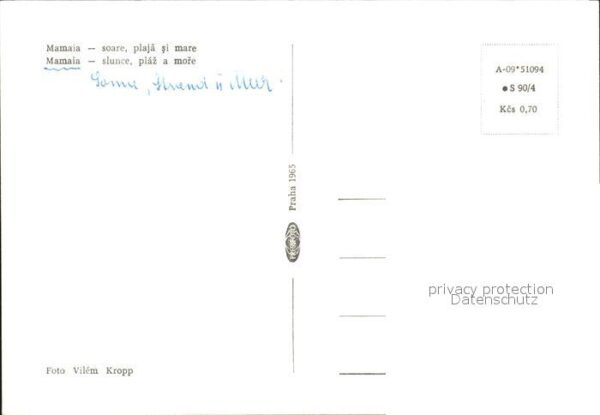 Mamaia — soare, plajă și mare
Mamaia — slunce, pláž a moře
Sonne, Strand u Meer.
A-09*51094
● S 90/4
Kčs 0,70
Praha 1965
privacy protection
Datenschutz
Foto Vilém Kropp